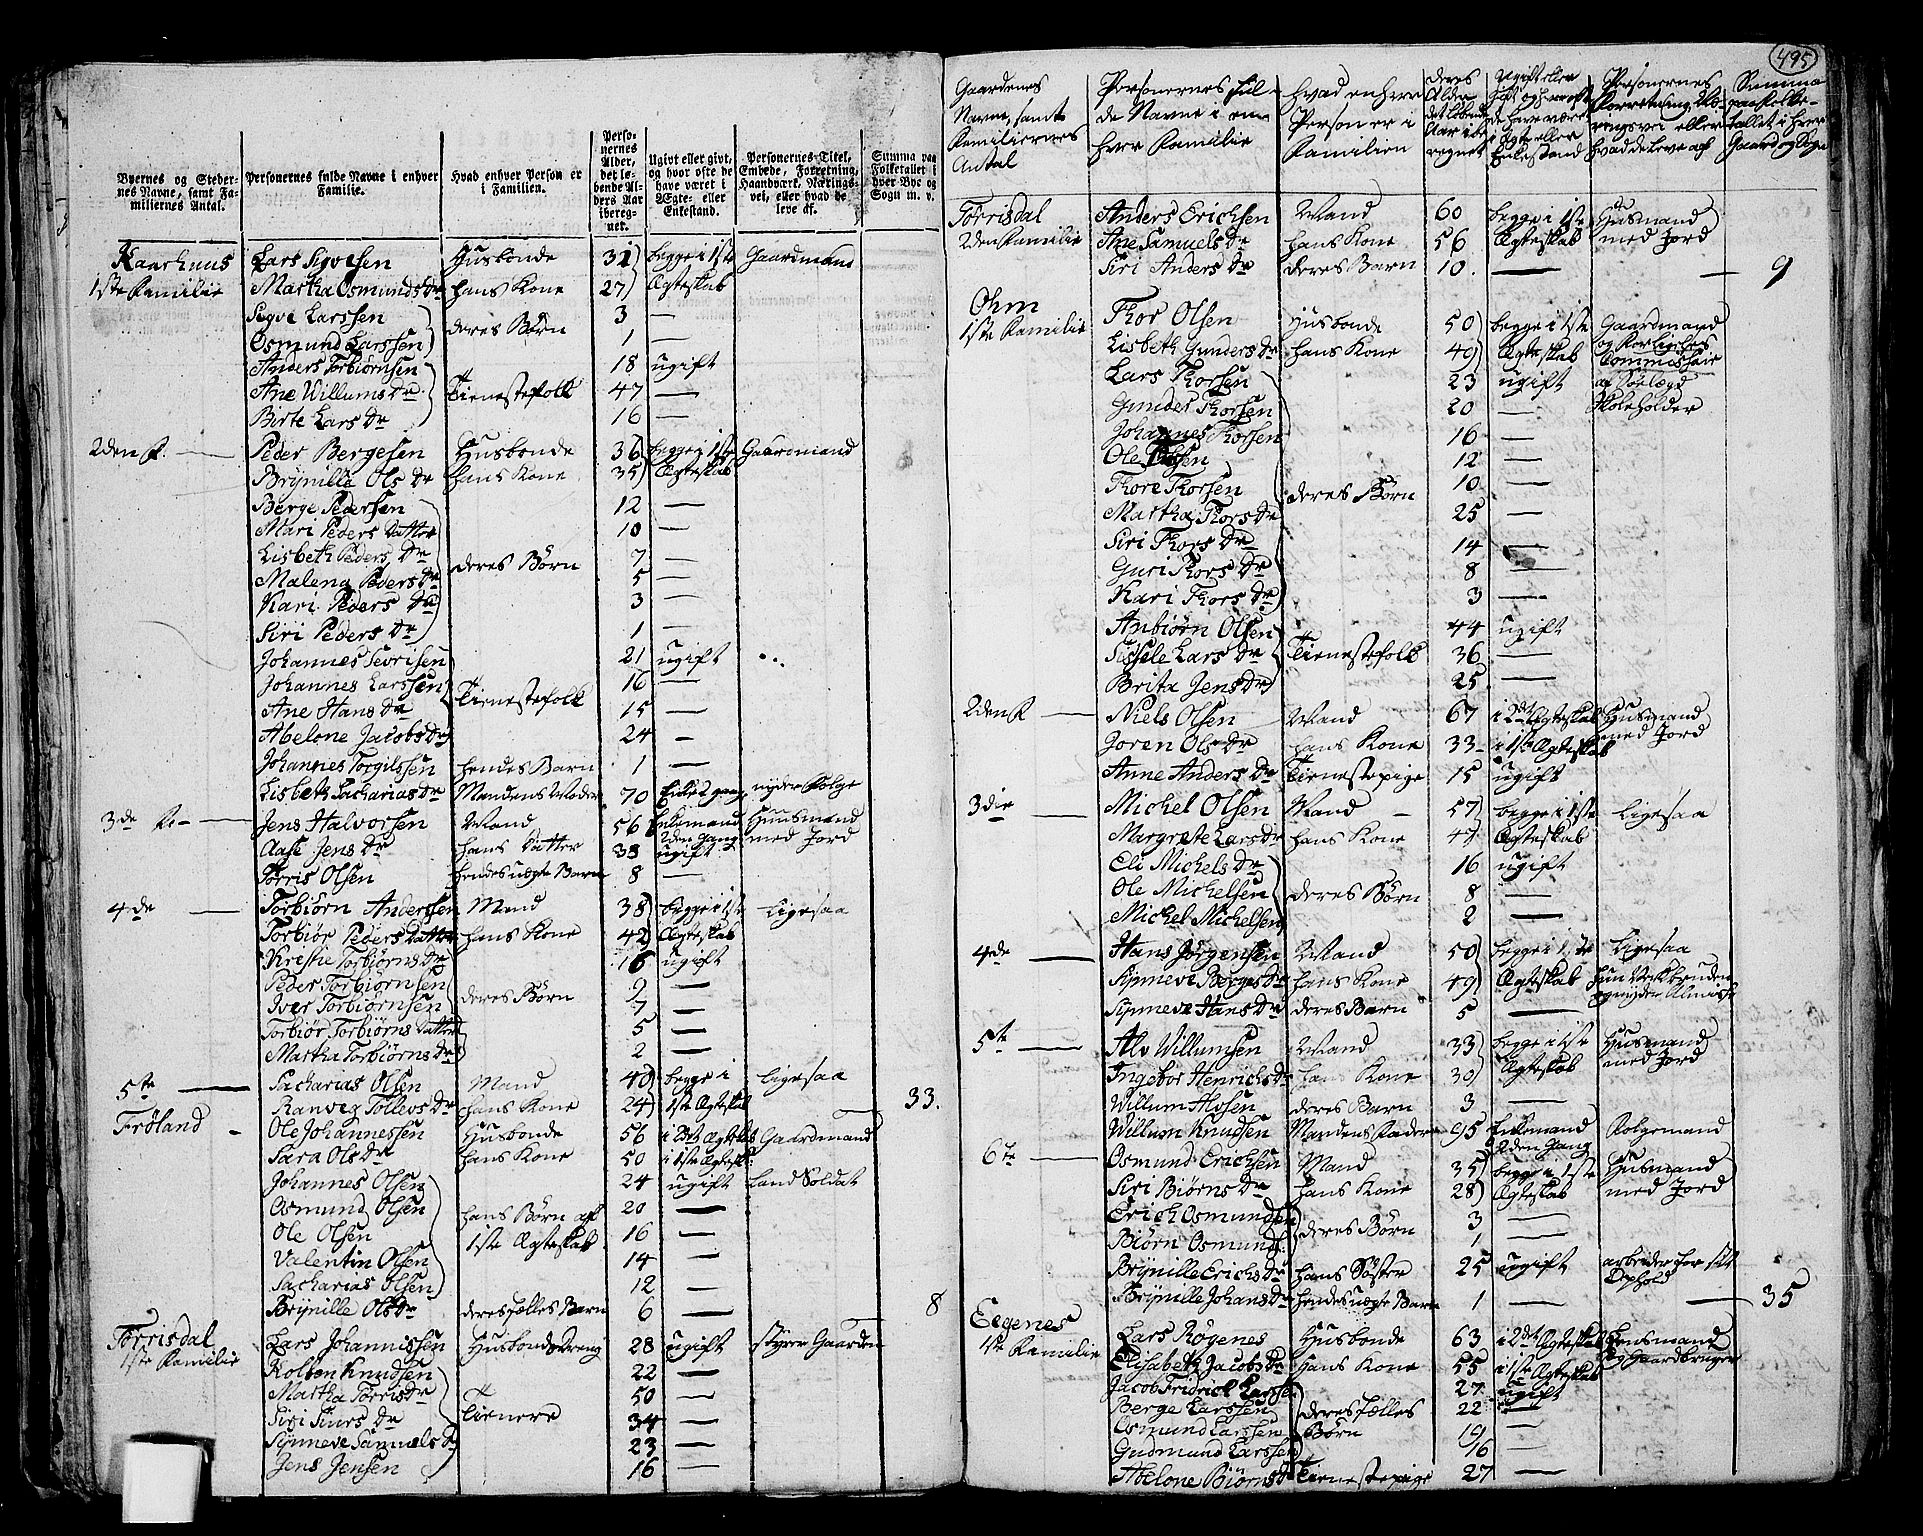 Byernes og Stedernes Navne, samt Familiernes Antal. | Personernes fulde Navne i enhver Familie. | Hvad enhver Person er i Familien. | Personernes Alder, det løbende Alders Aar iberegnet. | Ugivt eller givt, og hvor ofte de have været i Ægte- eller Enkestand. | Personernes Titel, Embede, Forretning, Haandværk, Næringsvei, eller hvad de leve af. | Summa paa Folketallet i hver Bye og Sogn m. v.
Kaarhuus | Lars Sigvesen | Husbonde | 31 | begge i 1ste | Gaardmand
1ste Familie | Martha Osmunds Dr | hans Kone | 27 | Ægteskab
Sigve Larssen | deres Børn | 3 | —
Osmund Larssen | 1 | —
Anders Torbiørnsen | 18 | ugift
Ane Willums Dr | Tienestefolk | 47 | —
Birte Lars Dr | 16 | —
2den F. — | Peder Bergesen | Husbonde | 36 | begge i 1ste | Gaardmand
Brynille Ols Dr | hans Kone | 35 | Ægteskab
Berge Pedersen | 12 | —
Mari Peders Datter | 10 | —
Lisbeth Peders Dr | 7 | —
Malena Peders Dr | deres Børn | 5 | —
Kari Peders Dr | 3 | —
Siri Peders Dr | 1 | —
Johannes Sevrisen | 21 | ugift
Johannes Larssen | Tienestefolk | 16 | —
Ane Hans Dr | 15 | —
Abelone Jacobs Dr | 24 | —
Johannes Torgilssen | hendes Barn | 1 | —
Lisbeth Sacharias Dr | Mandens Moder | 70 | nyder Folge
3de F. — | Jens Halvorsen | Mand | 56 | Enkemand 2den Gang | Huusmand med Jord
Aase Jens Dr | hans Datter | 33 | ugift
Tørris Olsen | hendes uægte Barn | 8 | —
4de — | Torbiørn Anderssen | Mand | 38 | begge i 1ste | Ligesaa
Torbiør Peders Datter | hans Kone | 42 | Ægteskab
Kristie Torbiørns Dr | 16 | ugift
Peder Torbiørnsen | deres Børn | 9 | —
Iver Torbiørnsen | 7 | —
Torbiør Torbiørns Datter | 5 | —
Martha Torbiørns Dr | 2 | —
5te — | Sacharias Olsen | Mand | 40 | begge i | Ligesaa
Ranveg Tollevs Dr | hans Kone | 24 | 1ste Ægteskab | 33.
Frøland | Ole Johannessen | Husbonde | 56 | Gaardmand
Sara Ols Dr | hans Kone | 50 | i 1ste Ægtesk:
Johannes Olsen | 24 | ugift | Land Soldat
Osmund Olsen | hans Børn af | 20 | —
Ole Olsen | 1ste Ægteskab | 16 | —
Valentin Olsen | 14 | —
Sacharias Olsen | 12 | —
Brynille Ols Dr | deres fælles Barn | 6 | — | 8
Tørrisdal | Lars Johannissen | Husbonds Dreng | 28 | ugift | styrer Gaarden
1ste Familie | Kolben Knudsen | 22 | —
Martha Tørris Dr | Tienere | 50 | —
Siri Siurs Dr | 34 | —
Synneve Samuels Dr | 23 | —
Jens Jensen | 16 | —
495
Gaardenes Navne, samt Familiernes Antal | Personernes fulde Navne i enhver Familie | hvad enhver Person er i Familien | deres Alder det løbende Aar iberegnet | Ugift eller gift og hvor oft de have været i Ægte eller Enkestand | Personernes Forretning, Næringsvei eller hvad de leve af | Summa paa Folketallet i hver Gaard og Sogn
Tørrisdal | Anders Erichsen | Mand | 60 | begge i 1ste | Husmand
2den Familie | Ane Samuels Dr | hans Kone | 56 | Ægteskab | med Jord
Siri Anders Dr | deres Barn | 10. | — | — | 9
Ohm | Thor Olsen | Husbonde | 50 | begge i 1ste | Gaardmand
1ste Familie | Lisbeth Gunders Dr | hans Kone | 49 | Ægteskab | og Forligelses Commissair
Lars Thorsen | 23 | ugift
Gunder Thorsen | 20 | — | Skoleholder
Johannes Thorsen | 16 | —
Ole Thorsen | 12 | —
Thore Thorsen | deres Børn | 10 | —
Martha Thors Dr | 25 | —
Siri Thors Dr | 14 | —
Guri Thors Dr | 8 | —
Kari Thors Dr | 3 | —
Anbiørn Olsen | 44 | ugift
Sissele Lars Dr | Tienestefolk | 36 | —
Brita Jens Dr | 25 | —
2den F — | Niels Olsen | Mand | 67 | i 2det Ægteskab | Husmand
Joren Ols Dr | hans Kone | 33 | i 1ste Ægteskab | med Jord
Anne Anders Dr | Tienestepige | 15 | ugift
3die — | Michel Olsen | Mand | 57 | begge i 1ste | Ligesaa
Margrete Lars Dr | hans Kone | 47 | Ægteskab
Eli Michels Dr | 16 | ugift
Ole Michelsen | deres Børn | 8 | —
Michel Michelsen | 2 | —
4de — | Hans Jørgensen | Mand | 50 | begge i 1ste | Ligesaa
Synneve Berges Dr | hans Kone | 49 | Ægteskab | hun Værkbruden og nyder Almisse
Synneve Hans Dr | deres Barn | 5 | —
5te — | Alv Willumsen | Mand | 33 | begge i 1ste | Husmand
Ingebor Henrichs Dr | hans Kone | 30 | Ægteskab | med Jord
Willum Alvsen | deres Barn | 3 | —
Willum Knudsen | Mandens Fader | 95 | Enkemand 2den Gang | Folgemand
6te — | Osmund Erichsen | Mand | 35 | begge i 1ste | Husmand
Siri Biørns Dr | hans Kone | 28 | Ægteskab | med Jord
Erich Osmundsen | deres Børn | 3 | —
Biørn Osmunds: | 1 | —
Brynille Erichs Dr | hans Søster | 25 | ugift | arbeider for sit Ophold
Brynille Johans Dr | hendes uægte Barn | 1 | — | — | 35
Eegenes | Lars Røgenes | Husbonde | 63 | i 2det Ægteskab | Lensmand
1ste Familie | Elisabeth Jacobs Dr | hans Kone | 55 | i 1ste Ægteskab | og Gaardbruger
Jacob Fridrich Larsse: | 27 | ugift
Berge Larssen | deres fælles | 22 | —
Osmund Larssen | Børn | 19 | —
Gudmund Larssen | 16 | —
Abelone Biørns Dr | Tienestepige | 27 | —